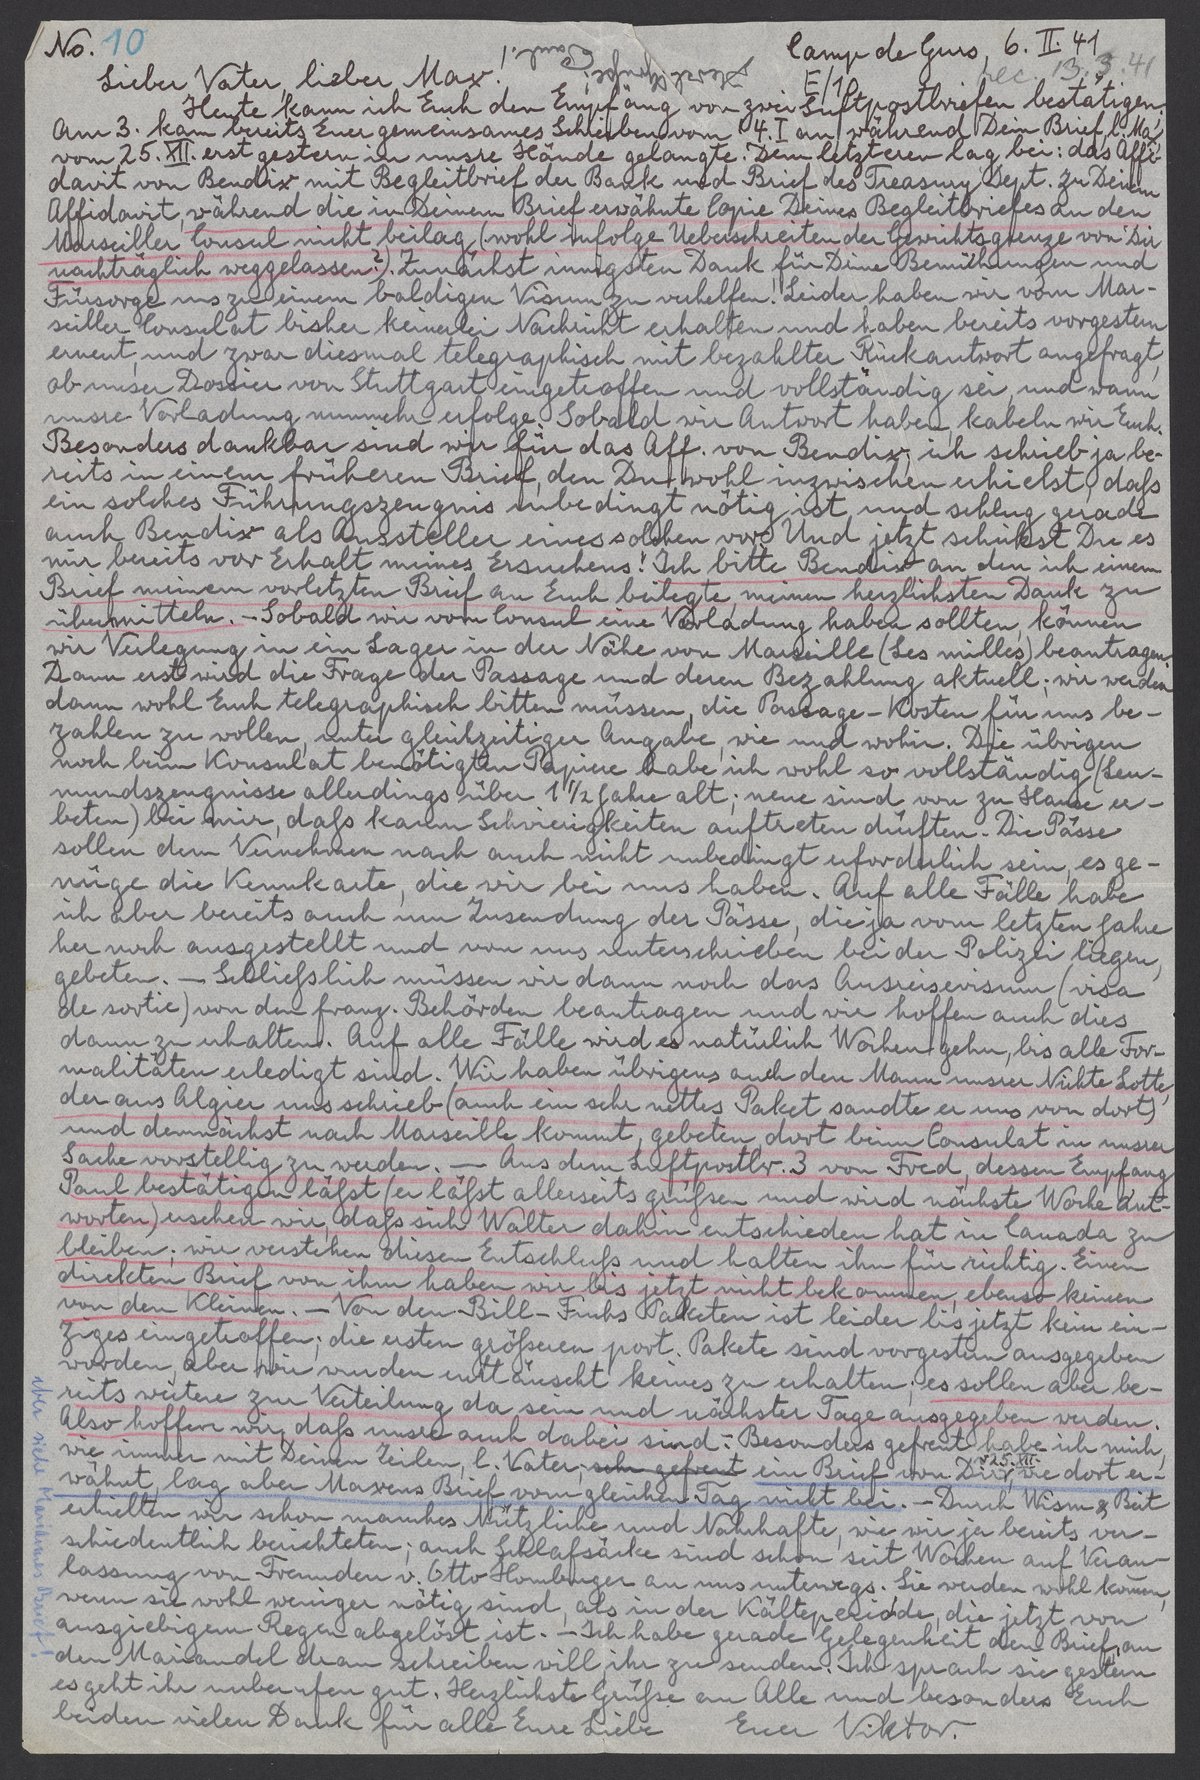 No. 10
Camp de Gurs, 6. II. 41
E/10
rec. 13.3.41
Lieber Vater, lieber Max!
Heute kann ich Euch den Empfang von zwei Luftpostbriefen bestätigen.
Am 3. kam bereits Euer gemeinsames Schreiben vom 4. I an, während Dein Brief, l. Max,
vom 25. XII. erst gestern in unsre Hände gelangte. Dem letzteren lag bei: das Affi-
davit von Bendix mit Begleitbrief der Bank und Brief des Treasury Dept. zu Deinem
Affidavit, während die in Deinem Brief erwähnte Copie Deines Begleitbriefes an den
Marseiller Consul nicht beilag (wohl infolge Ueberschreiten der Gewichtsgrenze von Dir
nachträglich weggelassen?). Zunächst innigsten Dank für Deine Bemühungen und
Fürsorge uns zu einem baldigen Visum zu verhelfen. Leider haben wir vom Mar-
seiller Consulat bisher keinerlei Nachricht erhalten und haben bereits vorgestern
erneut, und zwar diesmal telegraphisch mit bezahlter Rückantwort angefragt,
ob unser Dossier von Stuttgart eingetroffen und vollständig sei, und wann
unsre Vorladung nunmehr erfolge. Sobald wir Antwort haben, kabeln wir Euch.
Besonders dankbar sind wir für das Aff. von Bendix; ich schrieb ja be-
reits in einem früheren Brief, den Du wohl inzwischen erhielst, dafs
ein solches Führungszeugnis unbedingt nötig ist, und schlug gerade
auch Bendix als Aussteller eines solchen vor. Und jetzt schickst Du es
mir bereits vor Erhalt meines Ersuchens! Ich bitte Bendix an den ich einem
Brief meinem vorletzten Brief an Euch beilegte, meinen herzlichsten Dank zu
übermitteln. – Sobald wir vom Consul eine Vorladung haben sollten, können
wir Verlegung in ein Lager in der Nähe von Marseille (Les milles) beantragen.
Dann erst wird die Frage der Passage und deren Bezahlung aktuell; wir werden
dann wohl Euch telegraphisch bitten müssen, die Passage-Kosten für uns be-
zahlen zu wollen, unter gleichzeitiger Angabe, wie und wohin. Die übrigen
noch beim Konsulat benötigten Papiere habe ich wohl so vollständig (Leu-
mundszeugnisse allerdings über 1 1/2 Jahre alt; neue sind von zu Hause er-
beten) bei mir, dafs kaum Schwierigkeiten auftreten dürften. Die Pässe
sollen dem Vernehmen nach auch nicht unbedingt erforderlich sein, es ge-
nüge die Kennkarte, die wir bei uns haben. Auf alle Fälle habe
ich aber bereits auch um Zusendung der Pässe, die ja vom letzten Jahre
her noch ausgestellt und von uns unterschrieben bei der Polizei liegen,
gebeten. – Schliefslich müssen wir dann noch das Ausreisevisum (visa
de sortie) von den franz. Behörden beantragen und wir hoffen auch dies
dann zu erhalten. Auf alle Fälle wird es natürlich Wochen gehn, bis alle For-
malitäten erledigt sind. Wir haben übrigens auch den Mann unsrer Nichte Lotte,
der aus Algier uns schrieb (auch ein sehr nettes Paket sandte er uns von dort)
und demnächst nach Marseille kommt, gebeten, dort beim Consulat in unsrer
Sache vorstellig zu werden. – Aus dem Luftpostbr. 3 von Fred, dessen Empfang
Paul bestätigen läfst (er läfst allerseits grüfsen und wird nächste Woche ant-
worten) ersehen wir, dafs sich Walter dahin entschieden hat in Canada zu
bleiben; wir verstehen diesen Entschlufs und halten ihn für richtig. Einen
direkten Brief von ihm haben wir bis jetzt nicht bekommen, ebenso keinen
von den Kleinen. – Von den Bill-Fuchs Paketen ist leider bis jetzt kein ein-
ziges eingetroffen; die ersten gröfseren port. Pakete sind vorgestern ausgegeben
worden, aber wir wurden enttäuscht keines zu erhalten; es sollen aber be-
reits weitere zur Verteilung da sein und nächster Tage ausgegeben werden.
Also hoffen wir, dafs unsre auch dabei sind. – Besonders gefreut habe ich mich,
wie immer mit Deinen Zeilen, l. Vater, sehr gefreut ein Brief von Dir v 25. XII., wie dort er-
wähnt, lag aber Maxens Brief vom gleichen Tag nicht bei. – Durch Wism & Beit
erhielten wir schon manches Nützliche und Nahrhafte, wie wir ja bereits ver-
schiedentlich berichteten; auch Schlafsäcke sind schon seit Wochen auf Veran-
lassung von Freunden v. Otto Homburger an uns unterwegs. Sie werden wohl kommen,
wenn sie wohl weniger nötig sind, als in der Kälteperiode, die jetzt von
ausgiebigem Regen abgelöst ist. – Ich habe gerade Gelegenheit den Brief, an
den Mariandel dran schreiben will ihr zu senden. Ich sprach sie gestern
es geht ihr unberufen gut. Herzlichste Grüfse an Alle und besonders Euch
beiden vielen Dank für alle Eure Liebe Euer Viktor.
Brief!